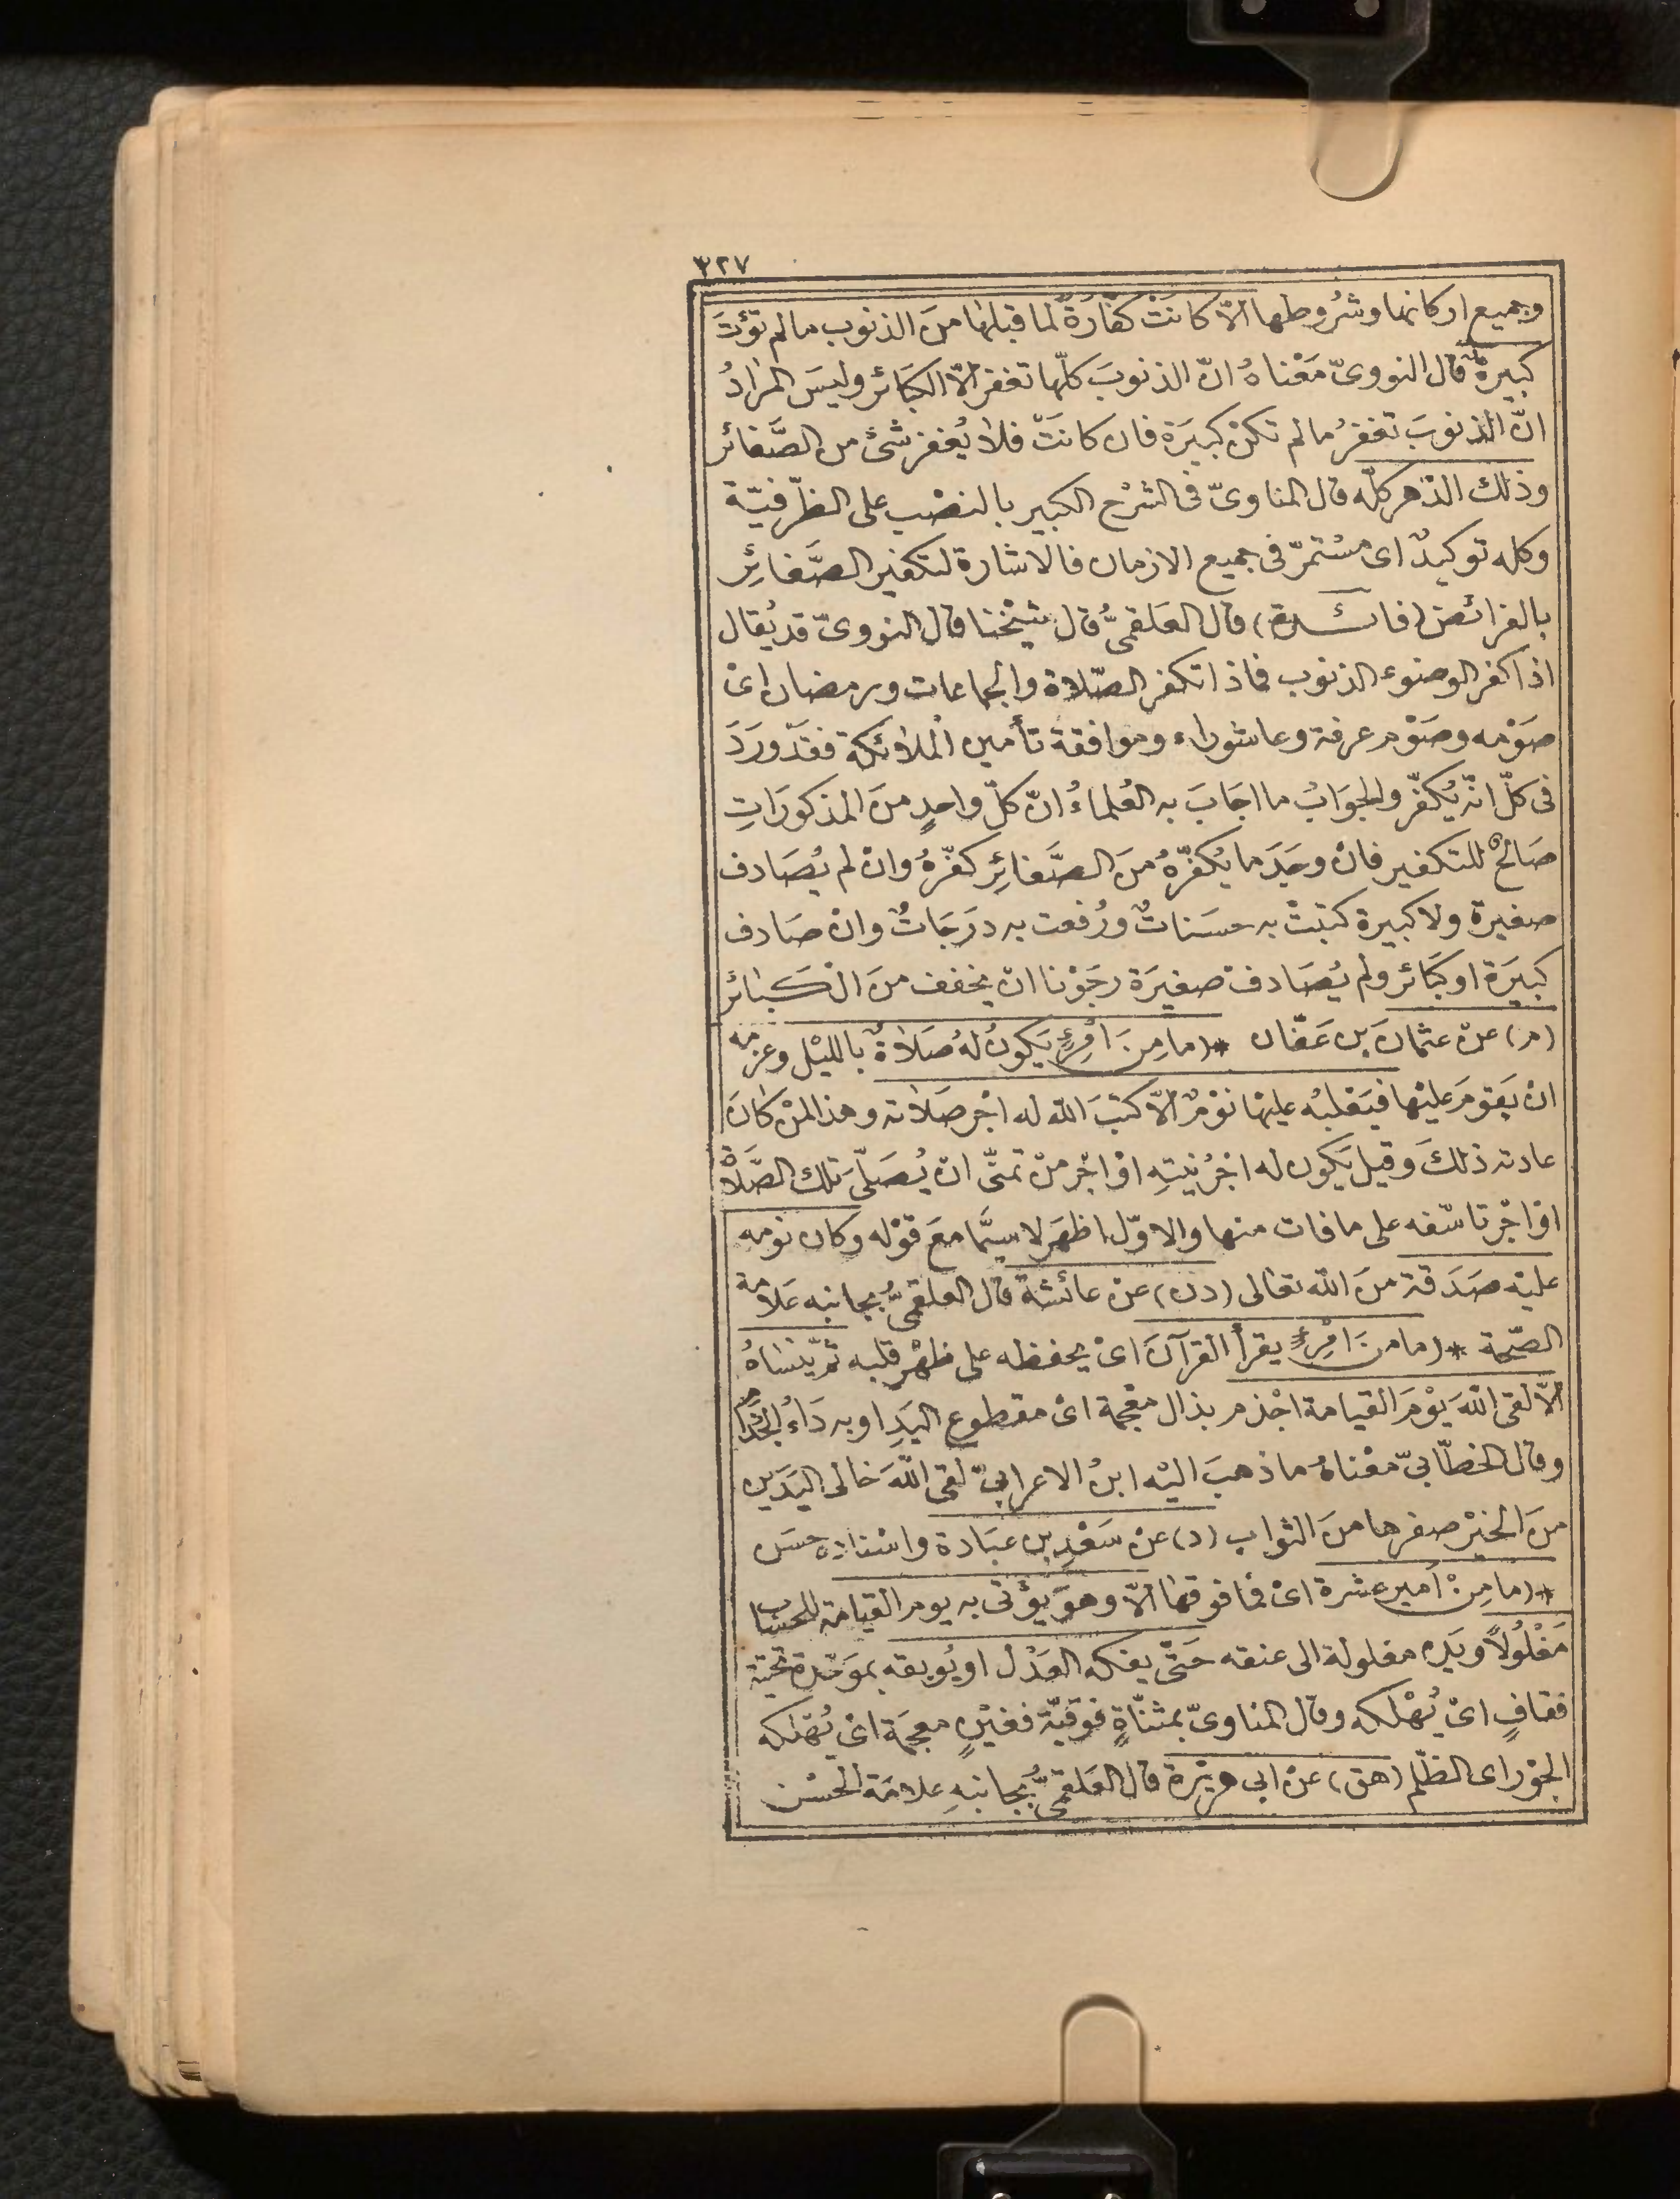 ٣٢٧
وجميع اركانها وشُروطها الّا كانَتْ كفّارَةً لما قبلها منَ الذنوب ما لم تؤتَ
كبيرة قال النووىّ مَعْناهُ انّ الذنوبَ كلّها تغفر الّا الكبَائر وليسَ المرادُ
انّ الذنوبَ تغفرُ ما لم تكنْ كبيَرة فان كانَتْ فلا يُغفر شئ من الصَّغائر
وذلك الدّهر كلّه قال المناوىّ فى الشرْح الكبير بالنصْب على الظّرفيّة
وكله توكيدٌ اى مسْتمرّ فى جميع الازمان فالاشارة لتكفير الصَّغائِر
بالفرائض (فائدة) قال العَلقمىُّ قال شيْخنا قال النووىّ قد يُقال
اذا كفر الوضوء الذنوب فماذا تكفر الصّلاة والجماعات ورمضان اىْ
صَوْمه وصَوْم عرفة وعاشوراء وموافقة تأمين الْملائكة فقدْ ورَدَ
فى كلّ انّه يُكفّر والجوَابُ ما اجَابَ به العُلماءُ انّ كلّ واحدٍ منَ المذكورَاتِ
صَالحٌ للتكفير فانْ وجَدَ ما يُكفّرهُ منَ الصَّغائِر كفّرهُ وانْ لم يُصَادف
صغيرة ولا كبيرة كتبَتْ به حسَناتٌ ورُفعت به درَجَاتٌ وانْ صَادف
كبيَرة او كبَائر ولم يُصَادف صغيَرة رجَوْنا انْ يخفف منَ الْكبائر
(م) عنْ عثمانَ بن عَفّان * (ما مِنَ امْرِئٍ يَكونُ لهُ صَلاةٌ بالليْل وعزمه
انْ يَقومَ عليْها فيَغلبُه عليها نوْمٌ الّا كتبَ الله له اجْر صَلاته وهذا لمنْ كانَ
عادته ذلكَ وقيل يَكون له اجْرُ نيتِهِ اوْ اجْر منْ تمنّى انْ يُصَلّىَ تلك الصَّلاة
اوْ اجْر تاسّفه على ما فات منها والاوّل اظهَر لاسيَّما معَ قوْله وكان نومه
عليْه صَدَقة منَ الله تعالى (دن) عنْ عائشة قال العلقمىُّ بجانبه عَلامة
الصّحة * (ما منَ امْرِئٍ يقرأ القرآنَ اىْ يحفظه على ظهْر قلبه ثمّ ينسَاهُ
الّا لقى اللّهَ يوْمَ القيامة اجْذم بذال معْجمة اىْ مقطوع اليَدِ او به دَاءُ الجُذام
وقال الخطّابىّ معْناهُ ما ذهبَ اليْه ابنُ الاعرابىّ لقى اللّهَ خالى اليَدَين
منَ الخيْر صفرها منَ الثواب (د) عنْ سَعْدِ بن عبَادة واسْناده حسَن
* (ما مِنْ امير عشرة اىْ فما فوقها الّا وهوَ يؤتى به يوم القيامة للحساب
مَغْلُولاً ويَده مغلولة الى عنقه حَتّى يفكه العَدْل او يُوبقه بموَحّدة تحتية
فقافٍ اىْ يُهْلكه وقال المناوىّ بمثنّاةٍ فوْقيّة فغيْنٍ معجَمة اىْ يُهلكه
الجوْر اى الظّلم (هق) عنْ ابى هريْرة قال العَلقمىُّ بجانبهِ علامَة الحسْن